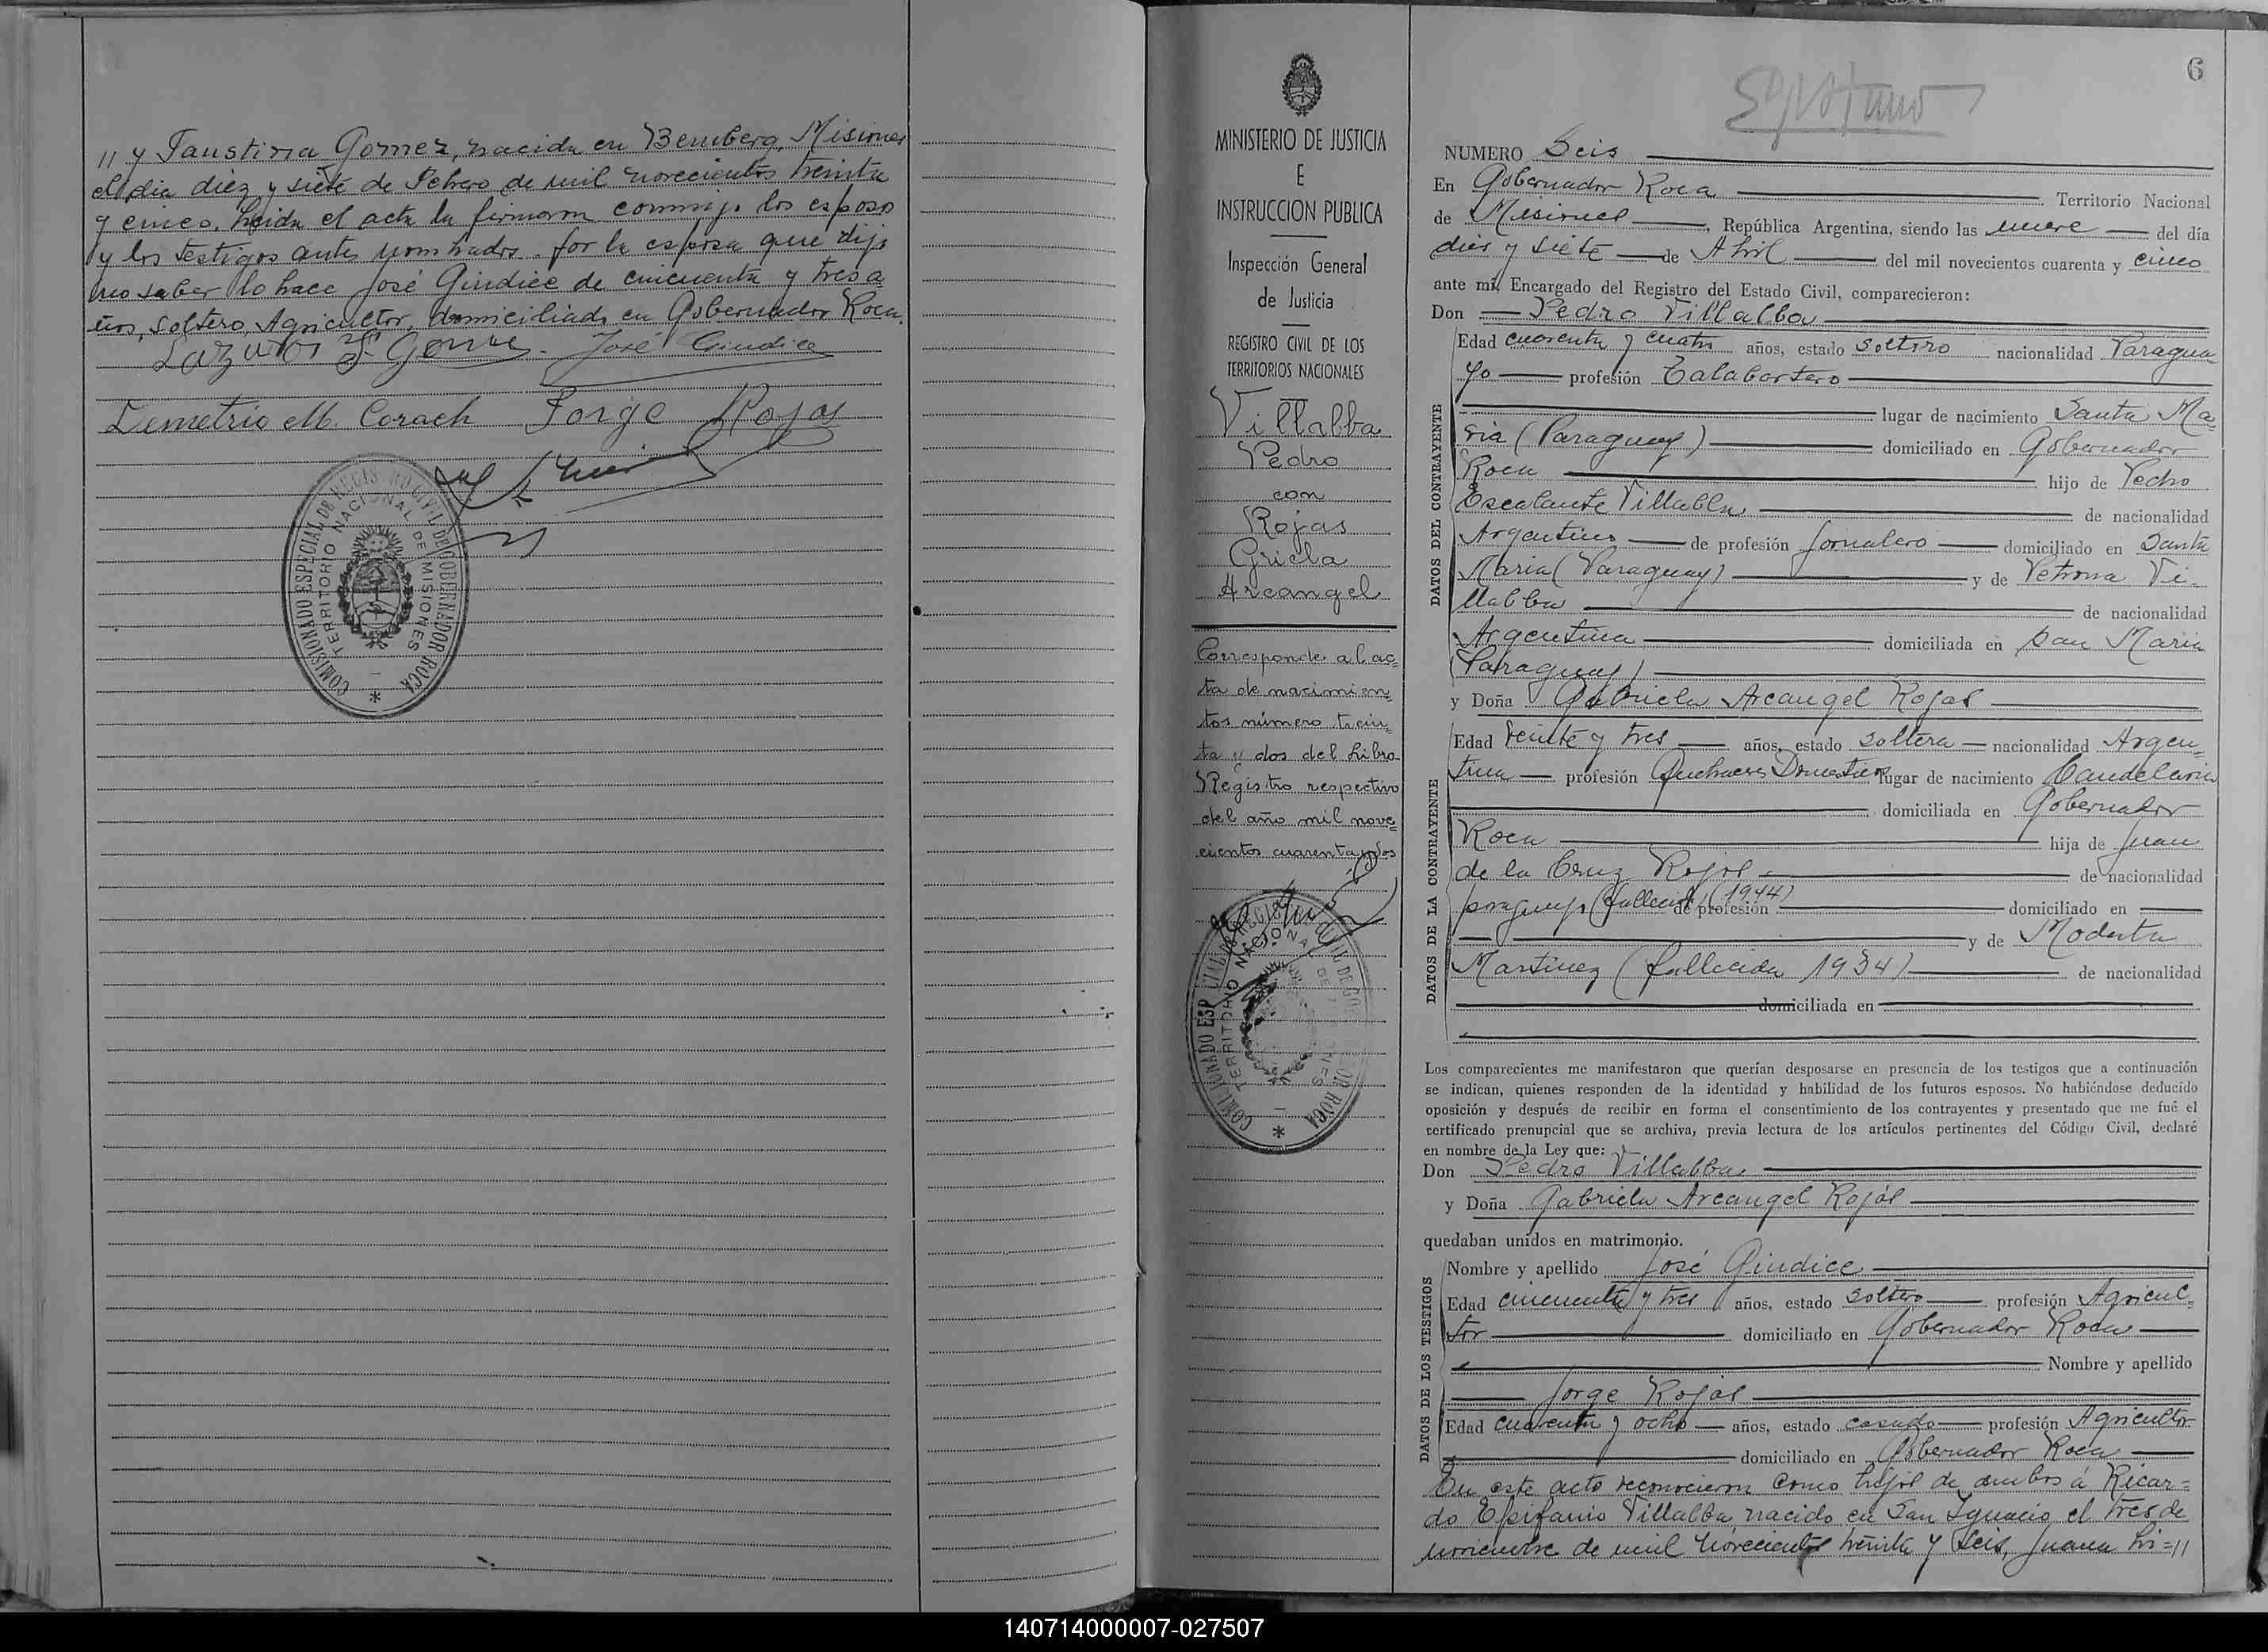 // y Faustina Gomez, nacida en Bemberg, Misiones
el dia diez y siete de Febrero de mil novecientos treinta
y cinco. Leida el acta la firmaron conmigo los esposos
y los testigos antes nombrados. Por la esposa que dijo
no saber lo hace José Giudice de cincuenta y tres a
ños, Soltero, Agricultor, domiciliado en Gobernador Roca.
José Giudice
Demetrio M. Corach Jorge Rojas
COMISIONADO ESPECIAL DE REGISTRO CIVIL DE GOBERNADOR ROCA
TERRITORIO NACIONAL DE MISIONES
MINISTERIO DE JUSTICIA
E
INSTRUCCION PUBLICA
Inspección General
de Justicia
REGISTRO CIVIL DE LOS
TERRITORIOS NACIONALES
Villalba
Pedro
con
Rojas
Griela
Arcangel
Corresponde al ac=
ta de nacimien=
tos número trein=
ta y dos del Libro
Registro respectivo
del año mil nove=
cientos cuarenta y dos
TERRITORIO NACIONAL
ROCA
6
NUMERO Seis
En Gobernador Roca Territorio Nacional
de Misiones, República Argentina, siendo las nueve del día
diez y siete de Abril del mil novecientos cuarenta y cinco
ante mí, Encargado del Registro del Estado Civil, comparecieron:
Don Pedro Villalba
DATOS DEL CONTRAYENTE
Edad cuarenta y cuatro años, estado soltero nacionalidad Paragua=
yo profesión Talabartero
lugar de nacimiento Santa Ma=
ria (Paraguay) domiciliado en Gobernador
Roca hijo de Pedro
Escalante Villalba de nacionalidad
Argentino de profesión Jornalero domiciliado en Santa
Maria (Paraguay) y de Petrona Vi-
llalba de nacionalidad
Argentina domiciliada en San Maria
(Paraguay)
y Doña Gabriela Arcangel Rojas
DATOS DE LA CONTRAYENTE
Edad veinte y tres años, estado soltera nacionalidad Argen=
tina profesión Quehaceres Domesticos lugar de nacimiento Candelaria
domiciliada en Gobernador
Roca hija de Juan
de la Cruz Rojas de nacionalidad
paraguayo (fallecido (1944) de profesión domiciliado en
y de Modesta
Martinez (fallecida 1934) de nacionalidad
domiciliada en
Los comparecientes me manifestaron que querían desposarse en presencia de los testigos que a continuación
se indican, quienes responden de la identidad y habilidad de los futuros esposos. No habiéndose deducido
oposición y después de recibir en forma el consentimiento de los contrayentes y presentado que me fué el
certificado prenupcial que se archiva, previa lectura de los artículos pertinentes del Código Civil, declaré
en nombre de la Ley que:
Don Pedro Villalba
y Doña Gabriela Arcangel Rojas
quedaban unidos en matrimonio.
DATOS DE LOS TESTIGOS
Nombre y apellido José Giudice
Edad cincuenta y tres años, estado soltero profesión Agricul=
tor domiciliado en Gobernador Roca
Nombre y apellido
Jorge Rojas
Edad cuarenta y ocho años, estado casado profesión Agricultor
domiciliado en Gobernador Roca
En este acto reconocieron como hijos de ambos á Ricar=
do Epifanio Villalba nacido en San Ignacio el tres de
noviembre de mil novecientos treinta y seis, Juana Li=//
140714000007-027507